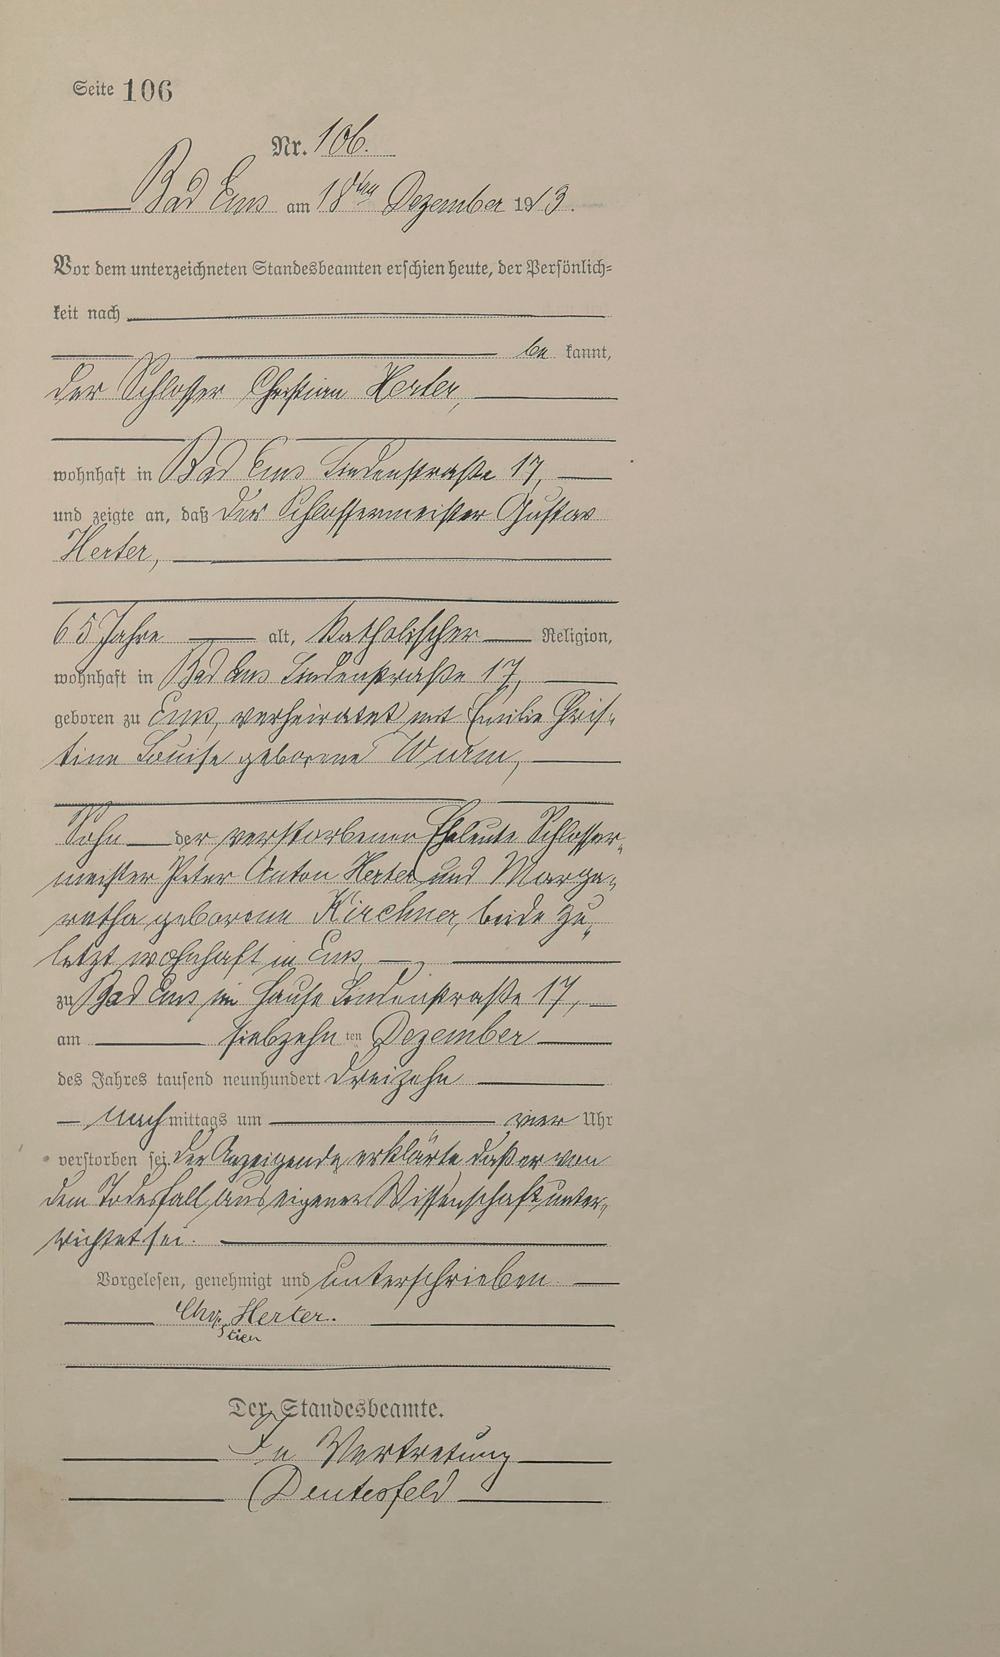 Seite 106
Nr. 106.
Bad Ems am 18ten Dezember 1913.
Vor dem unterzeichneten Standesbeamten erschien heute, der Persönlich-
keit nach
be kannt,
der Schlosser Christian Herter,
wohnhaft in Bad Ems Lindenstraße 17,
und zeigte an, daß der Schlossermeister Gustav
Herter,
65 Jahre alt, katholischer Religion,
wohnhaft in Bad Ems Lindenstraße 17,
geboren zu Ems, verheiratet mit Emilie Chris-
tine Louise geborene Wurm,
Sohn der verstorbenen Eheleute Schlosser-
meister Peter Anton Herter und Marga-
retha geborene Kirchner, beide zu-
letzt wohnhaft in Ems,
zu Bad Ems im Hause Lindenstraße 17,
am siebzehn ten Dezember
des Jahres tausend neunhundert dreizehn
nach mittags um vier Uhr
verstorben sei. Der Anzeigende erklärte daß er von
dem Todesfall aus eigener Wissenschaft unter-
richtet sei.
Vorgelesen, genehmigt und unterschrieben
Chris Herter.
tian
Der Standesbeamte.
In Vertretung